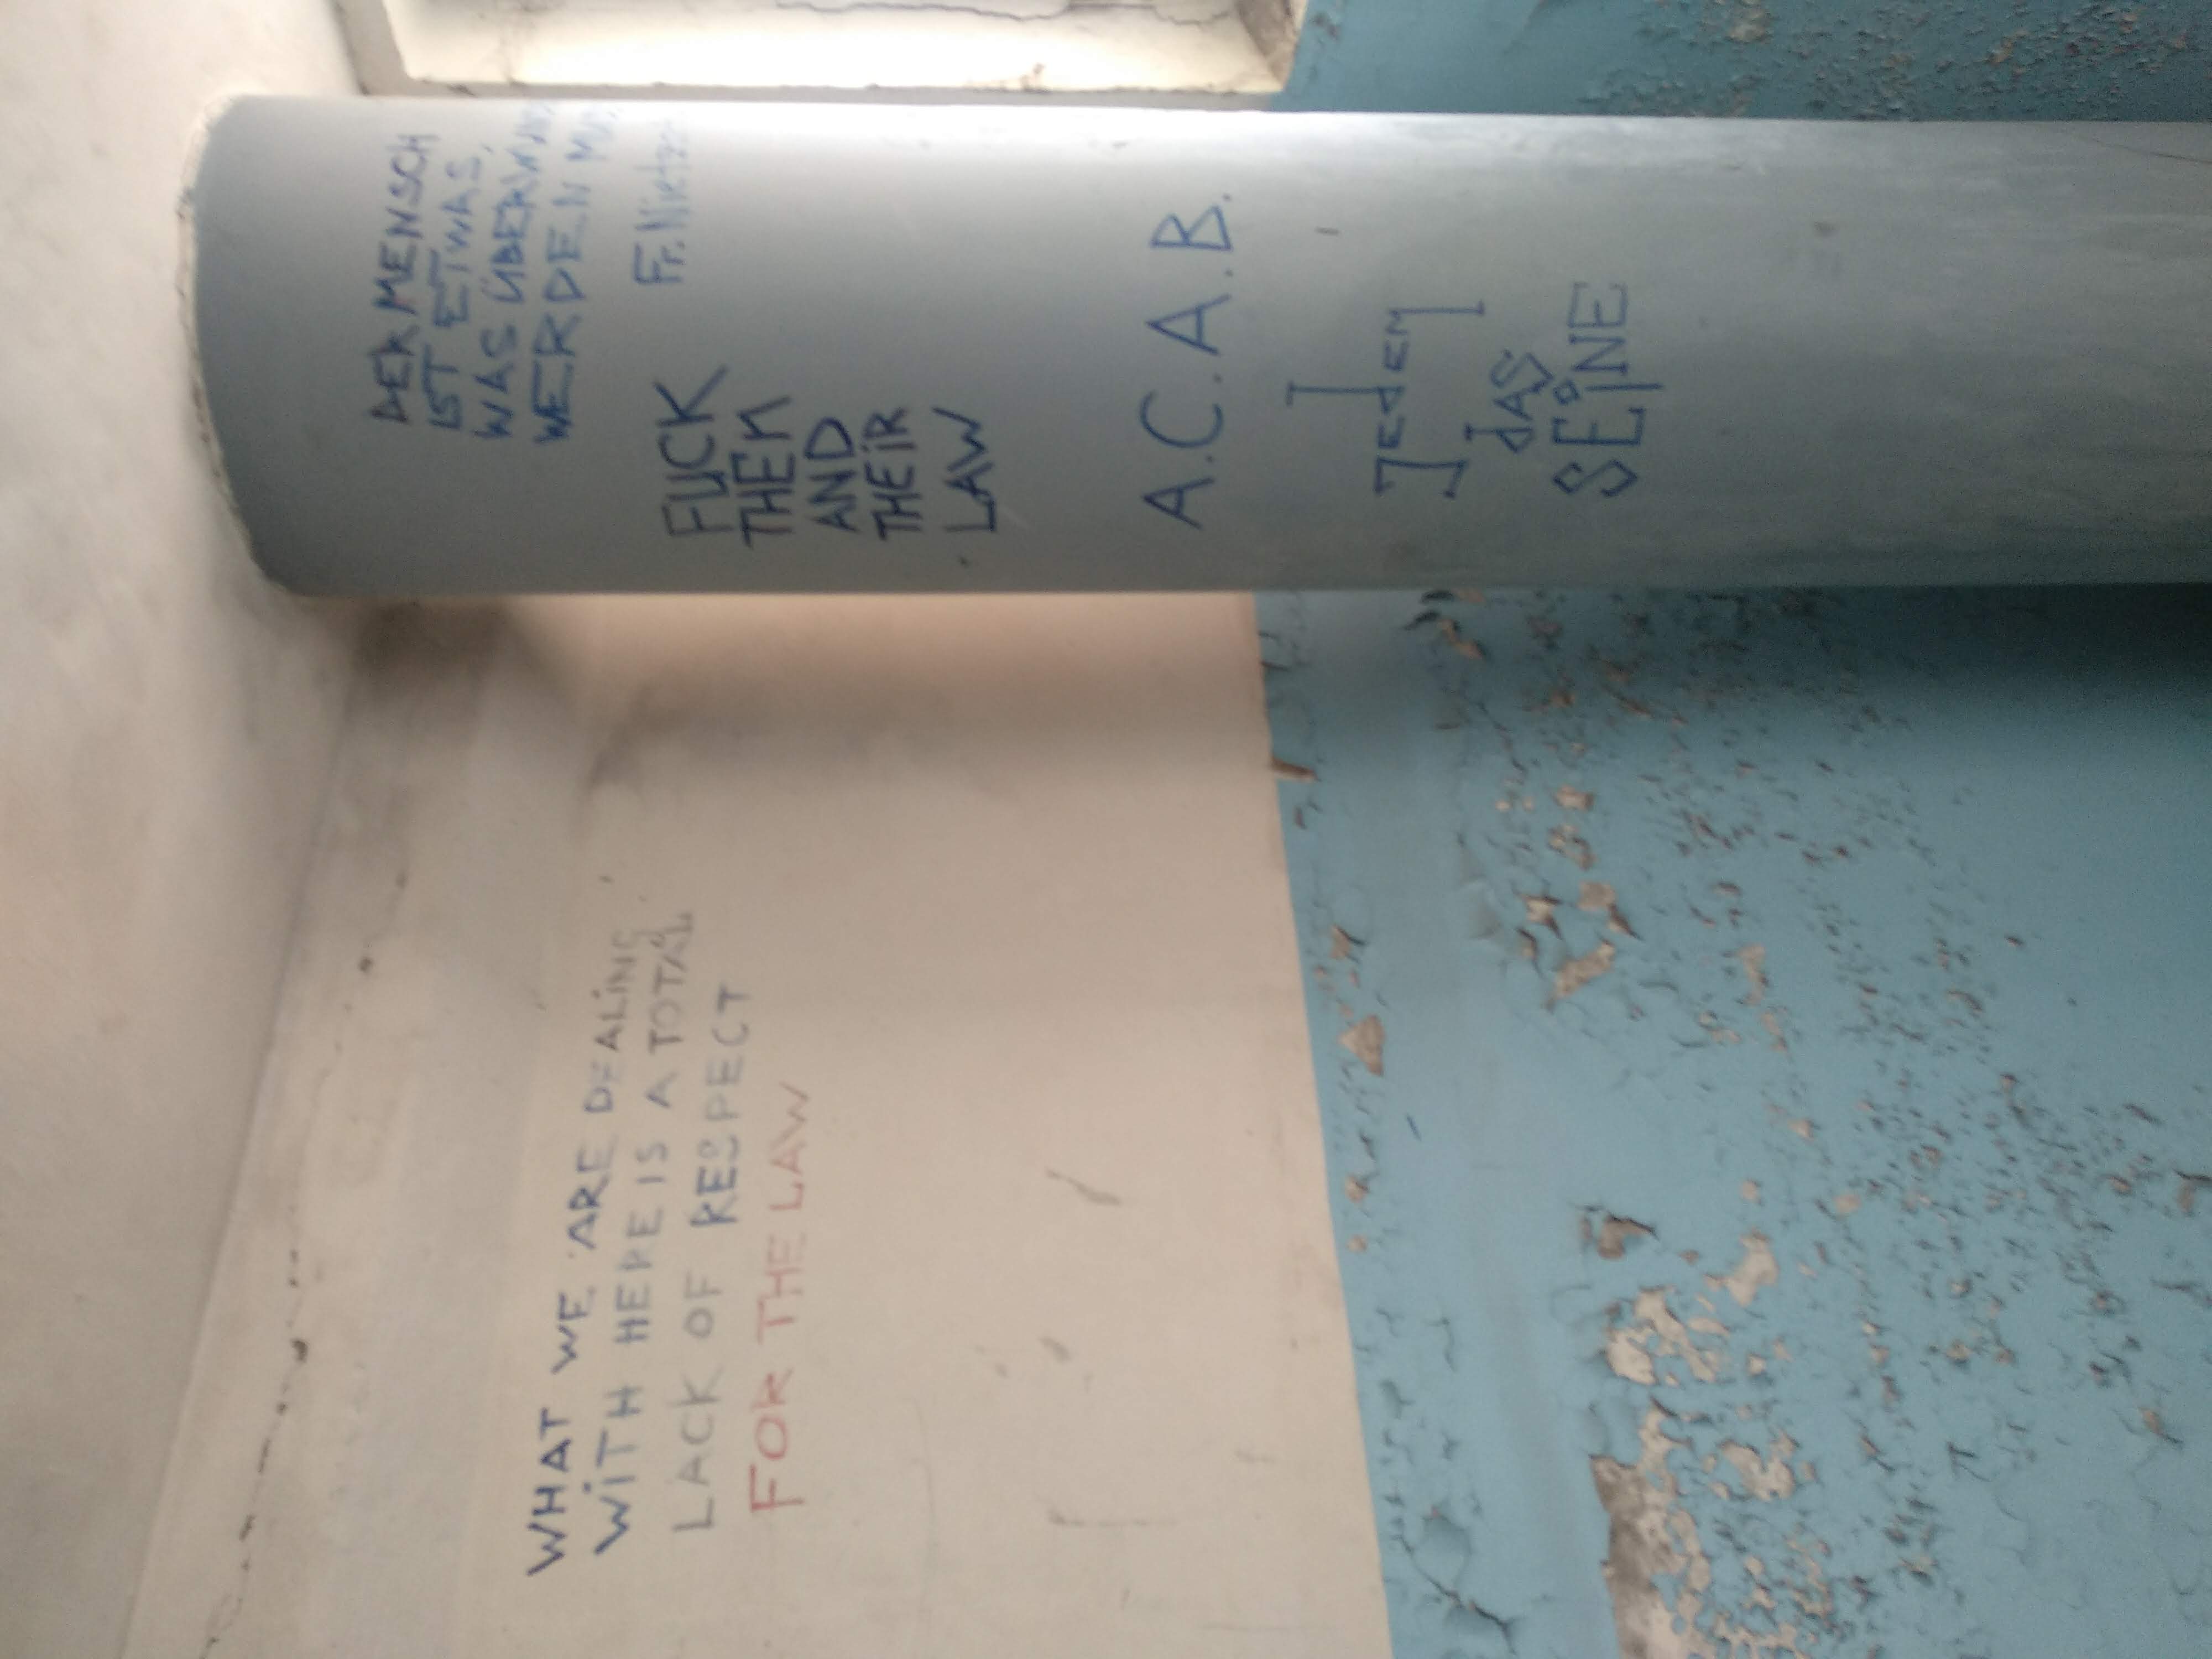 WHAT WE ARE DEALiNG
WiTH HERE IS A TOTAL
LACK OF RESPECT
FOR THE LAW
DER MENSCH
IST ETWAS,
WAS
WERDEN
Fr.
FUCK
THEM
AND
THEiR
LAW
A.C.A.B.
JEdEM
dAS
SEiNE